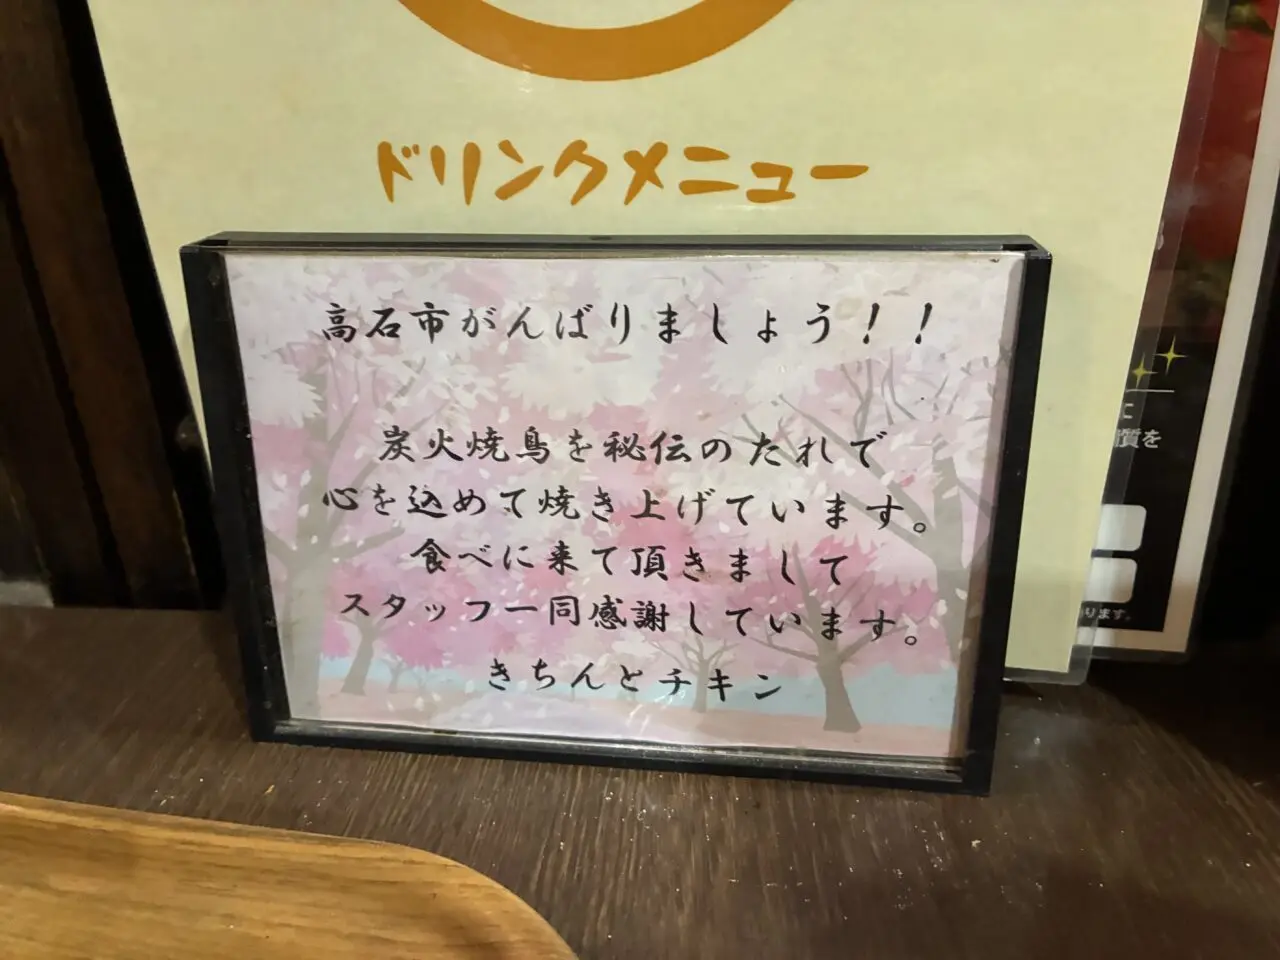 ドリンクメニュー
高石市がんばりましょう！！
炭火焼鳥を秘伝のたれで
心を込めて焼き上げています。
食べに来て頂きまして
スタッフ一同感謝しています。
きちんとチキン
に
質を
ります。